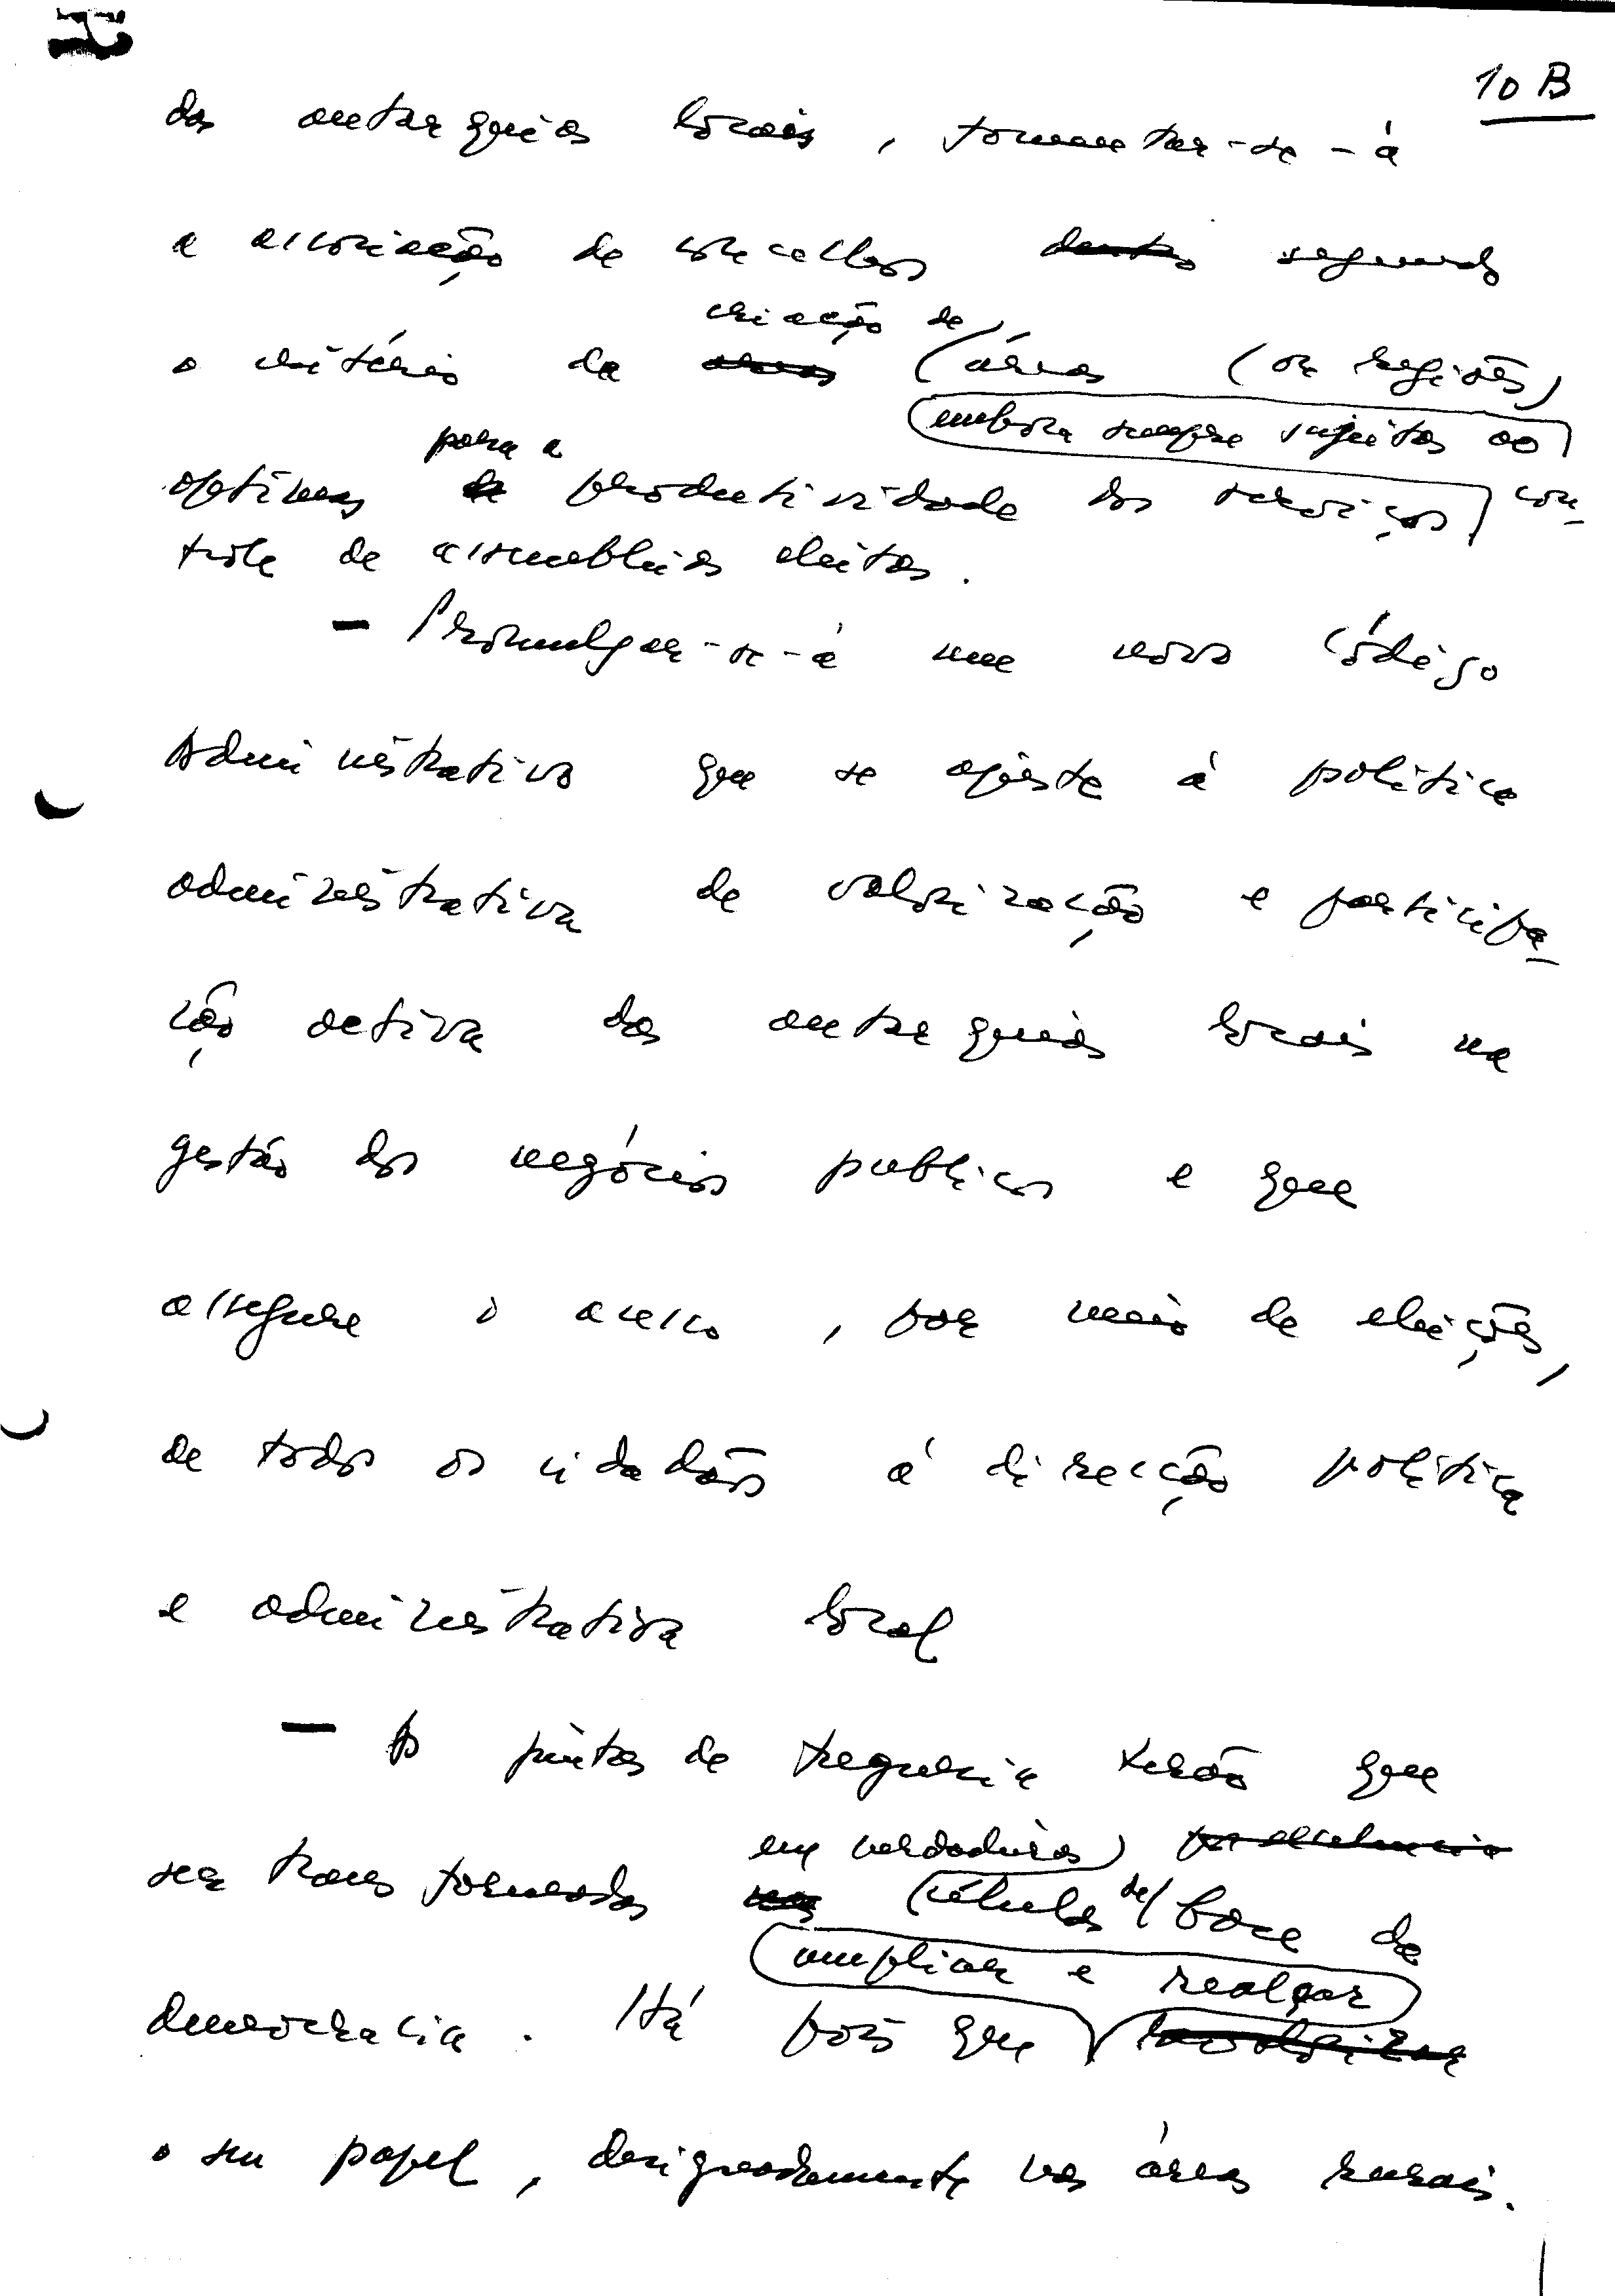 10 B
das autarquias locais, fomentar-se-á
a associação de concelhos dentro segundo
criação de
o critério da áreas (ou regiões)
embora sempre sujeitos ao
para a
optimas de productividade dos serviços con-
trole de assembleias eleitas.
- Promulgar-se-á um novo Código
Administrativo que se ajuste á política
administrativa de valorização e participa-
ção activa das autarquias locais na
gestão dos negócios publicos e que
assegure o acesso, por meio de eleições,
de todos os cidadãos á direcção política
e administrativa local
- As juntas de freguesia terão que
em verdadeiras
ser transformadas nas células de base da
ampliar e realçar
democracia. Há pois que
o seu papel, designadamente nas áreas rurais.